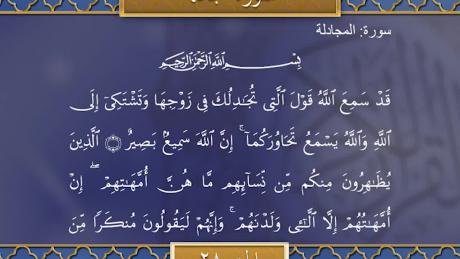 سورة: المجادلة
بِسْمِ اللَّهِ الرَّحْمَٰنِ الرَّحِيمِ
قَدْ سَمِعَ اللَّهُ قَوْلَ الَّتِي تُجَٰدِلُكَ فِي زَوْجِهَا وَتَشْتَكِيٓ إِلَى
اللَّهِ وَاللَّهُ يَسْمَعُ تَحَاوُرَكُمَآ ۚ إِنَّ اللَّهَ سَمِيعُۢ بَصِيرٌ ۝ الَّذِينَ
يُظَٰهِرُونَ مِنكُم مِّن نِّسَآئِهِم مَّا هُنَّ أُمَّهَٰتِهِمْ ۖ إِنْ
أُمَّهَٰتُهُمْ إِلَّا الَّٰٓـِٔي وَلَدْنَهُمْ ۚ وَإِنَّهُمْ لَيَقُولُونَ مُنكَرًا مِّنَ
٢٨